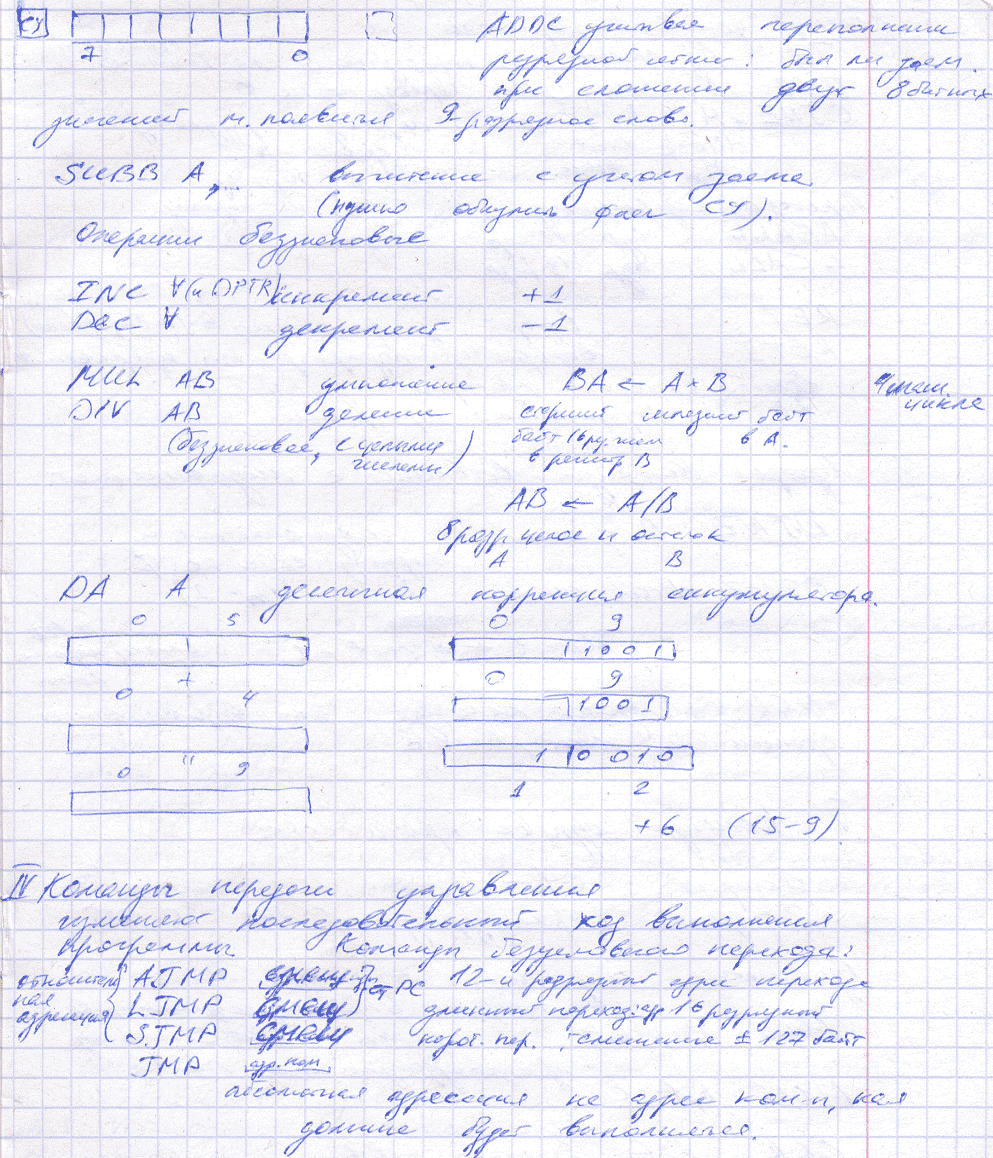 CY
7 0
ADDC учитывая переполнение
разрядной сетки: был ли заем.
при сложении двух 8 битных
значений м. появиться 9-разрядное слово.
SUBB A, ... вычитание с учетом заема
(нужно обнулить флаг CY).
Операции беззнаковые
INC ∀(и DPTR) инкремент +1
DEC ∀ декремент -1
MUL AB умножение BA ← A × B 4 маш. цикла
DIV AB деление старший младший байт
(беззнаковое, с целыми числами) байт в A.
в регистр B
AB ← A/B
8 разр целое и остаток
A B
DA A десятичная коррекция аккумулятора.
0 5 0 9
1 0 0 1
+
0 4 0 9
1 0 0 1
"
0 9 1 0 0 1 0
1 2
+6 (15-9)
IV Команды передачи управления
изменяют последовательный ход выполнения
программы Команды безусловного перехода:
относительная адресация
AJMP смещ от PC 12-и разрядный адрес перехода
LJMP смещ длинный переход: 16 разрядный
SJMP смещ корот. пер. смещение ± 127 байт
JMP адр. ком
абсолютная адресация на адрес ком-ы, кая
должна будет выполняться.